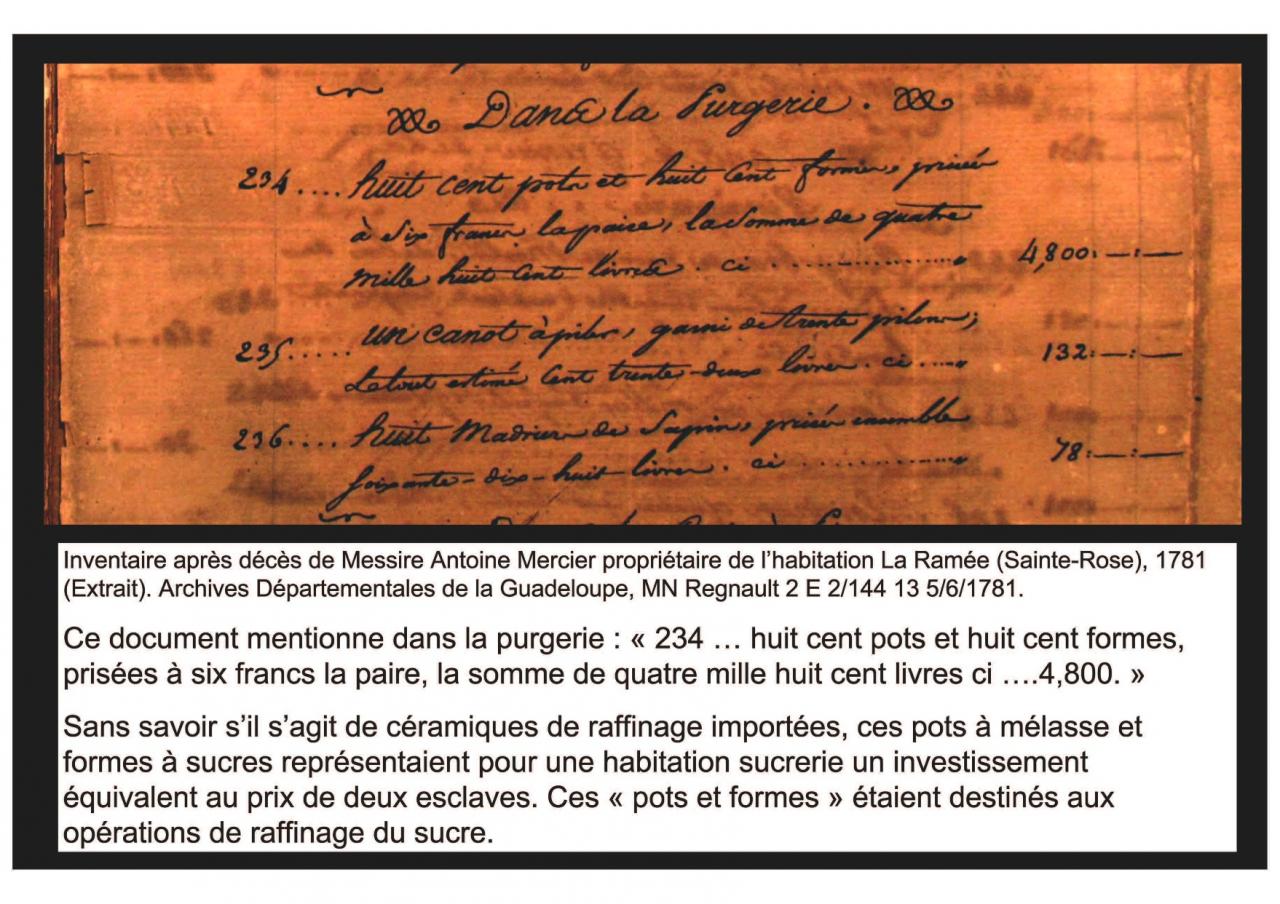 Dans la Purgerie .
234.... huit cent pots et huit Cent formes, prisées
à Six francs la paire, la Somme de quatre
mille huit Cent livres . ci ............... 4,800:—:—
235..... un canot à piler, garni de trente pilons;
Le tout estimé Cent trente-deux livres . ci ..... 132:—:—
236.... huit Madriers de Sapin, prisés ensemble
Soixante-dix-huit livres . ci ............ 78:—:—
Inventaire après décès de Messire Antoine Mercier propriétaire de l’habitation La Ramée (Sainte-Rose), 1781
(Extrait). Archives Départementales de la Guadeloupe, MN Regnault 2 E 2/144 13 5/6/1781.
Ce document mentionne dans la purgerie : « 234 … huit cent pots et huit cent formes,
prisées à six francs la paire, la somme de quatre mille huit cent livres ci ….4,800. »
Sans savoir s’il s’agit de céramiques de raffinage importées, ces pots à mélasse et
formes à sucres représentaient pour une habitation sucrerie un investissement
équivalent au prix de deux esclaves. Ces « pots et formes » étaient destinés aux
opérations de raffinage du sucre.